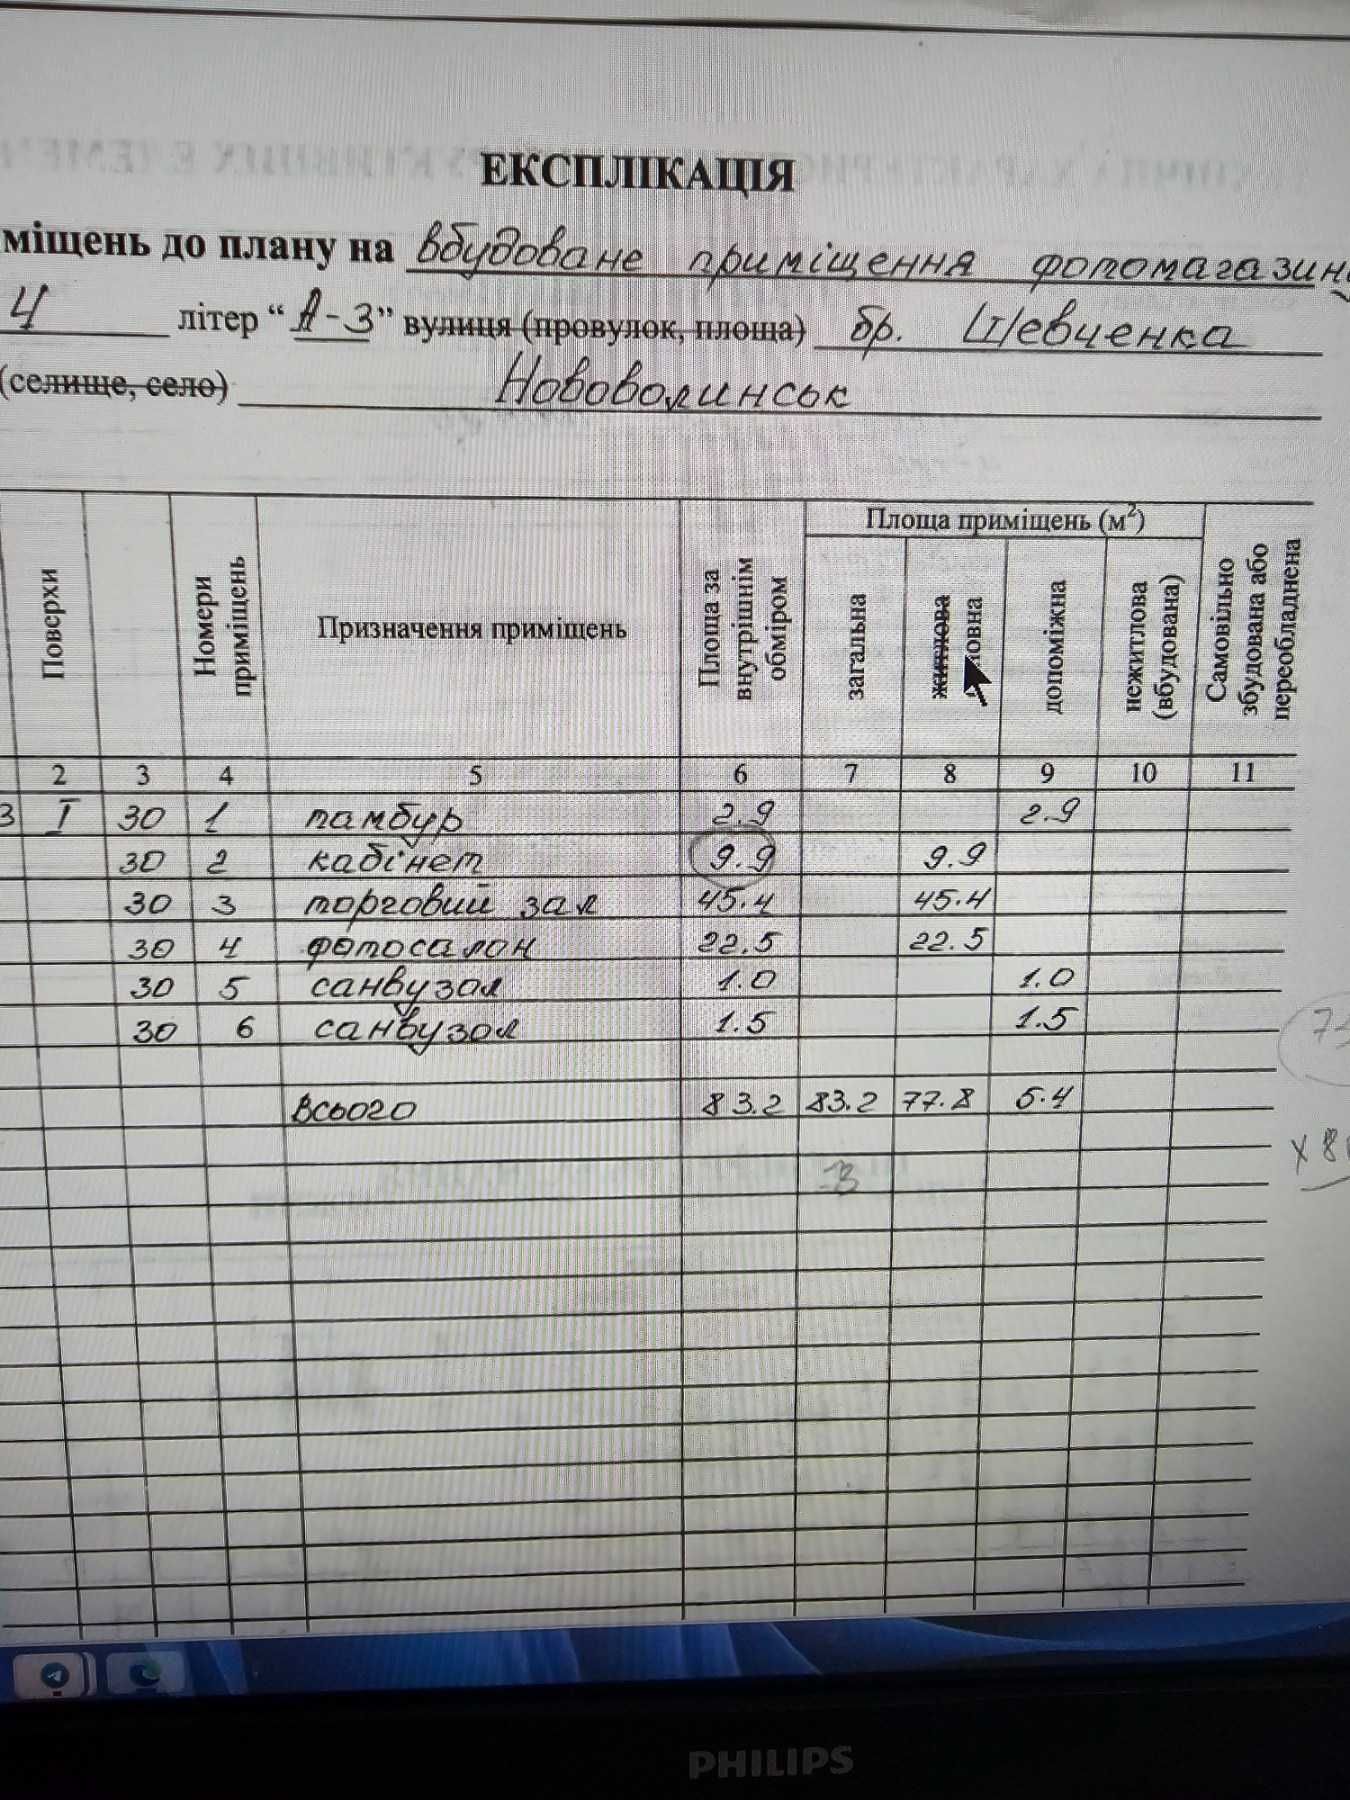 ЕКСПЛІКАЦІЯ
міщень до плану на вбудоване приміщення фотомагазину
4 літер “А-3” вулиця (провулок, площа) бр. Шевченка
(селище, село) Нововолинськ
Поверхи Номери приміщень Призначення приміщень Площа за внутрішнім обміром Площа приміщень (м²) загальна житлова допоміжна нежитлова (вбудована) Самовільно збудована або переобладнена
2 3 4 5 6 7 8 9 10 11
3 I 30 1 тамбур 2.9 2.9
30 2 кабінет 9.9 9.9
30 3 торговий зал 45.4 45.4
30 4 фотосалон 22.5 22.5
30 5 санвузол 1.0 1.0
30 6 санвузол 1.5 1.5
Всього 83.2 83.2 77.8 5.4
PHILIPS